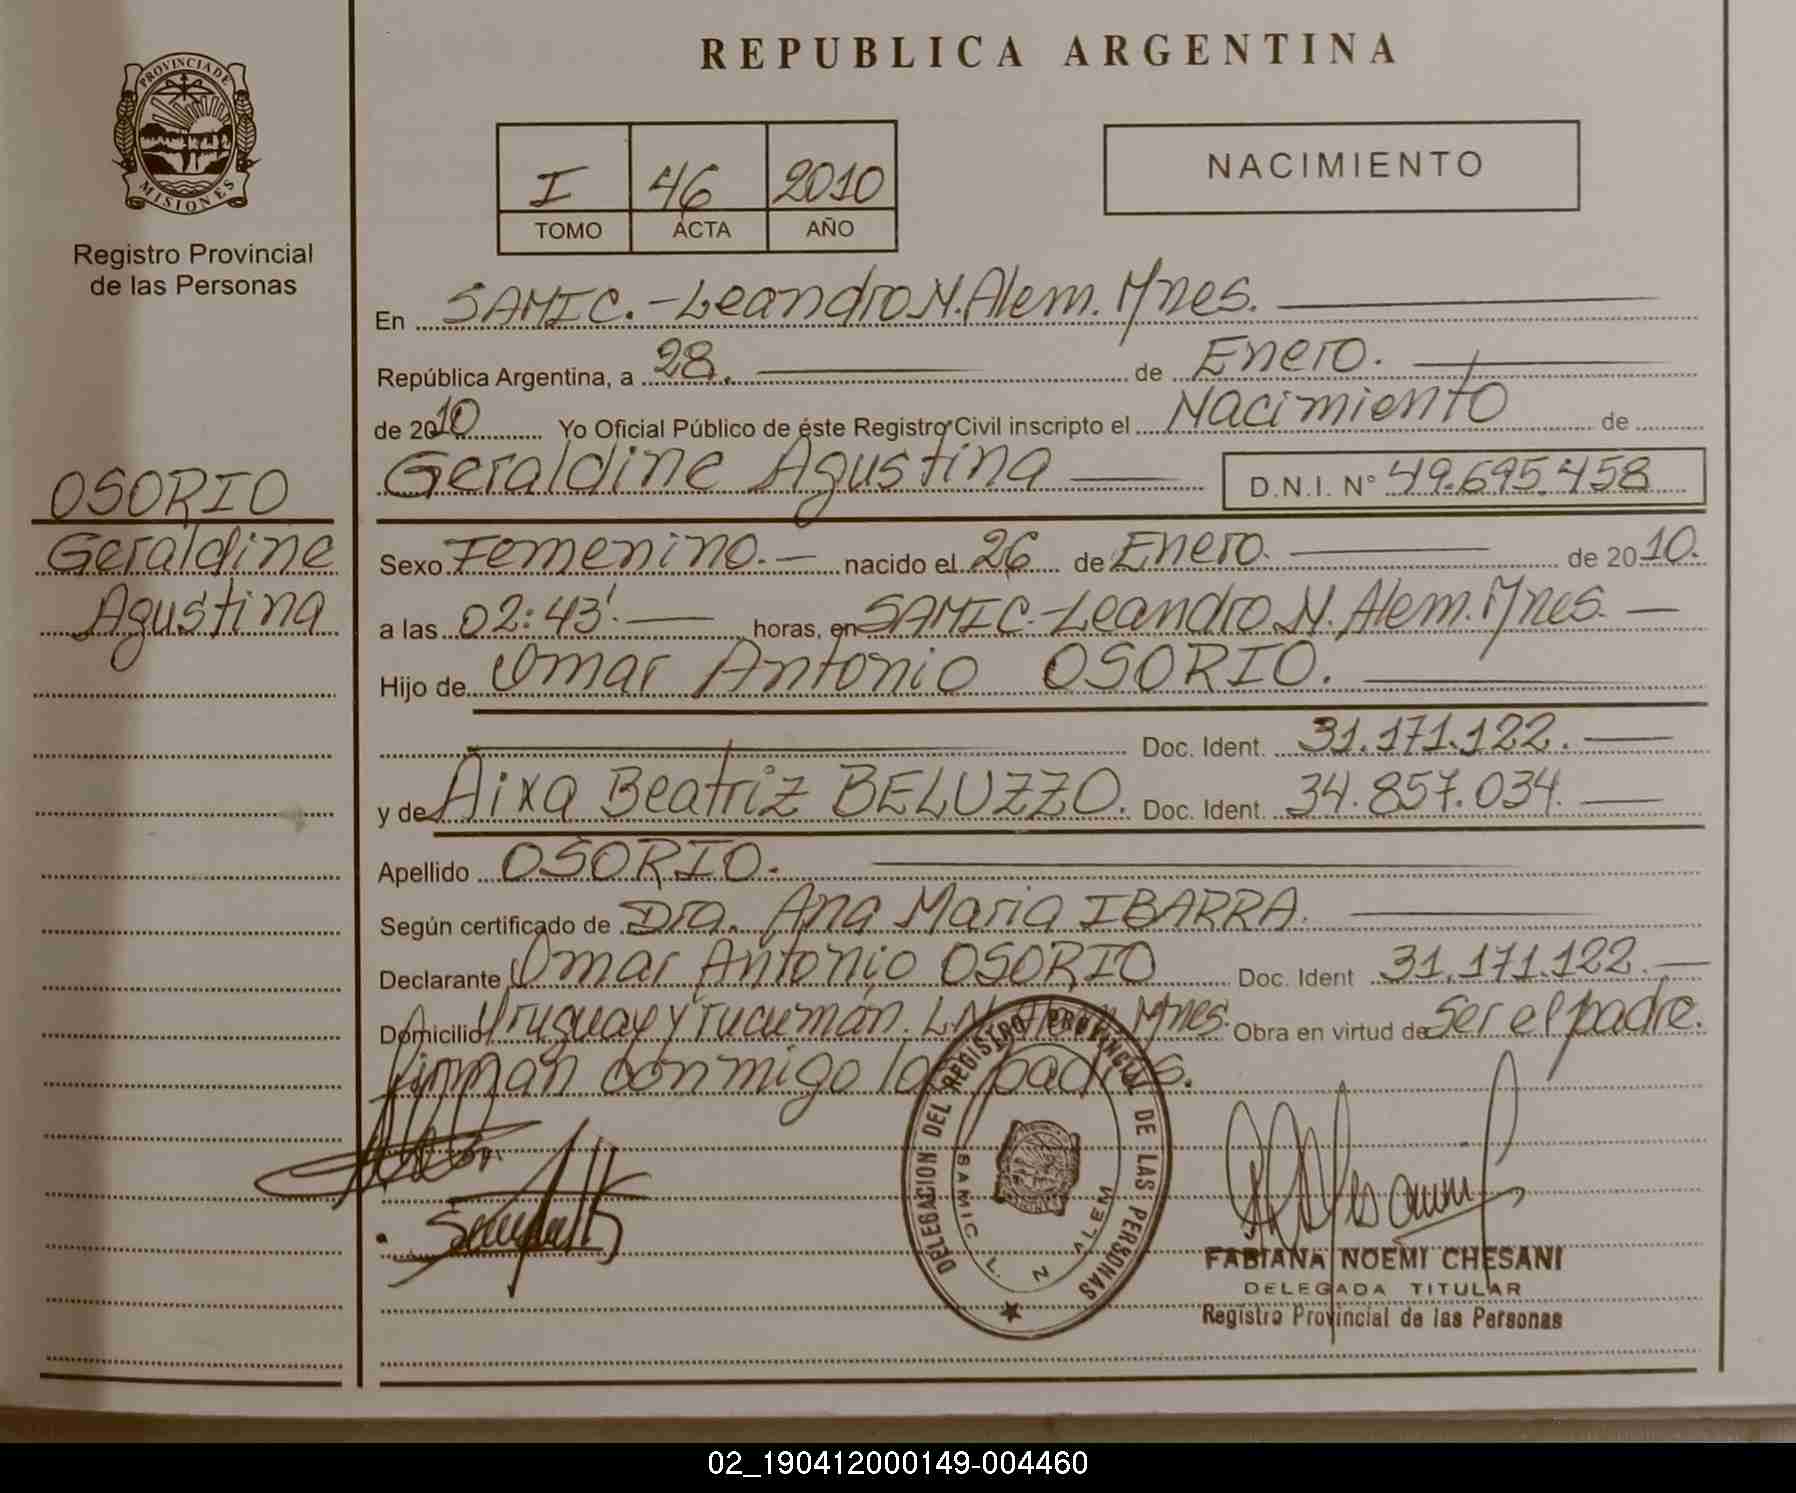 REPUBLICA ARGENTINA
PROVINCIA DE
MISIONES
Registro Provincial
de las Personas
I 46 2010
TOMO ACTA AÑO
NACIMIENTO
En SAMIC.-Leandro N. Alem. Mnes.
República Argentina, a 28. de Enero.
de 2010 Yo Oficial Público de éste Registro Civil inscripto el Nacimiento de
Geraldine Agustina D.N.I. N° 49.695.458
OSORIO
Geraldine
Agustina
Sexo Femenino.- nacido el 26 de Enero. de 2010.
a las 02:43'.- horas, en SAMIC.-Leandro N. Alem. Mnes.-
Hijo de Omar Antonio OSORIO.
Doc. Ident. 31.171.122.-
y de Aixa Beatriz BELUZZO. Doc. Ident. 34.857.034.-
Apellido OSORIO.
Según certificado de Dra. Ana Maria IBARRA.
Declarante Omar Antonio OSORIO Doc. Ident 31.171.122.-
Domicilio Uruguay y Tucumán. L.N. Alem Mnes. Obra en virtud de Ser el padre.
Firman conmigo los padres.
DELEGACION DEL REGISTRO PROVINCIAL DE LAS PERSONAS
SAMIC L. N ALEM
FABIANA NOEMI CHESANI
DELEGADA TITULAR
Registro Provincial de las Personas
02_190412000149-004460